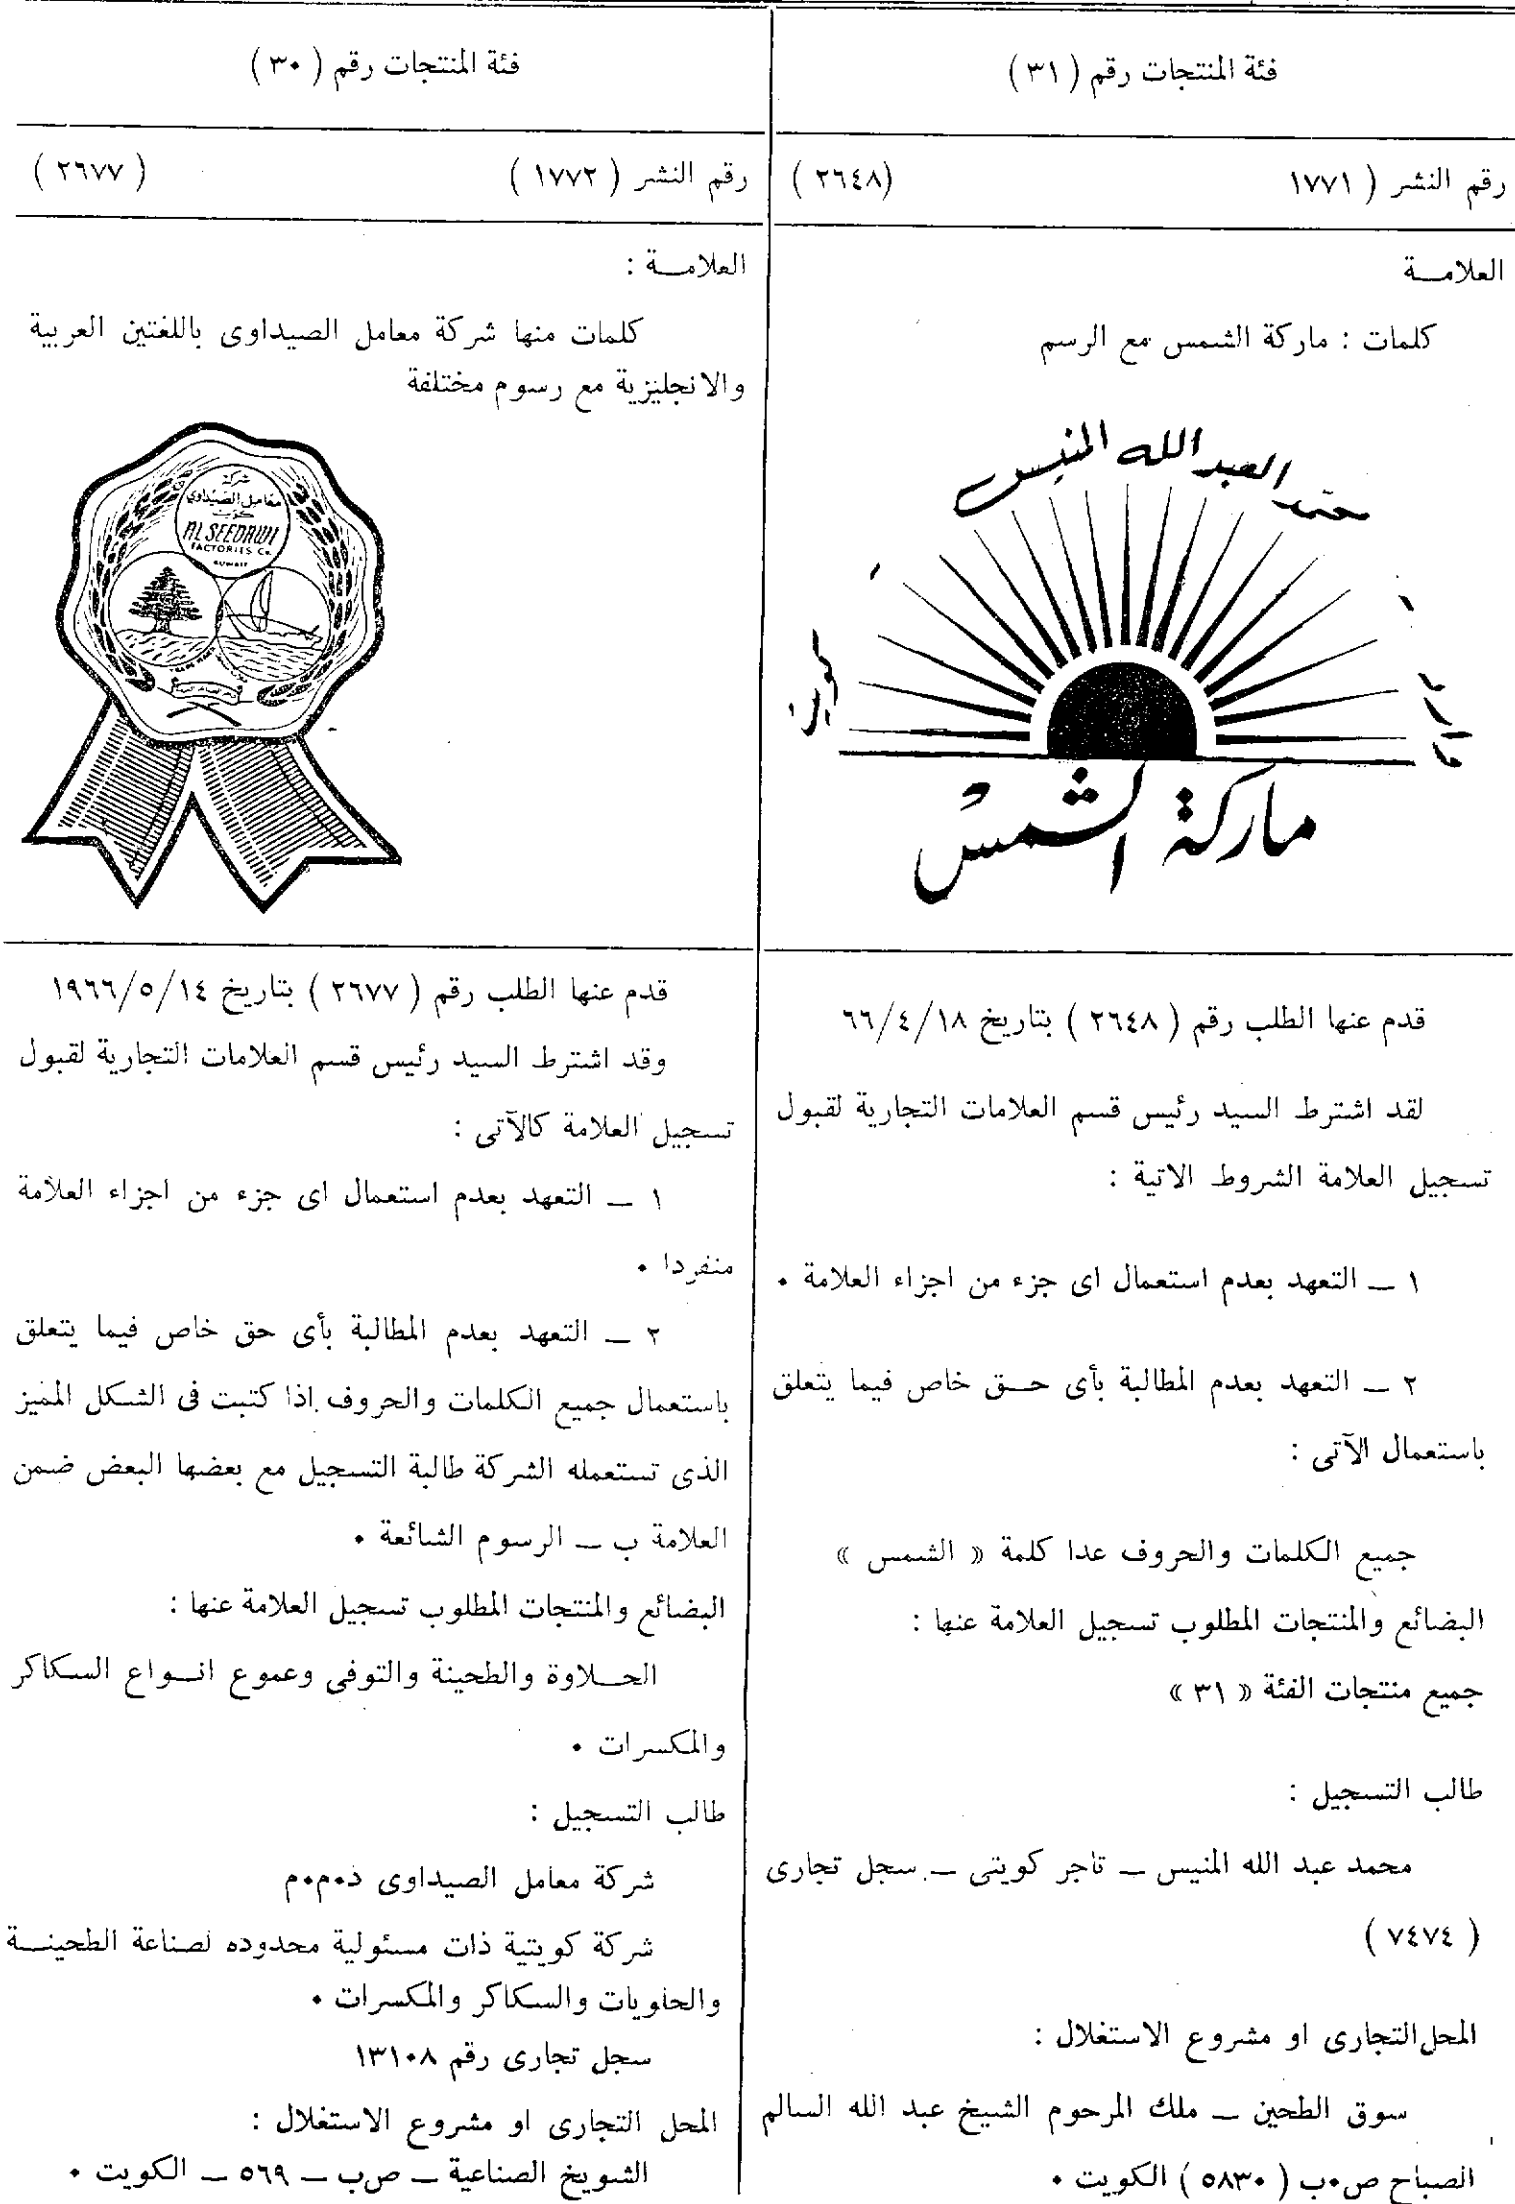 فئة المنتجات رقم ( ٣١ )
رقم النشر ( ١٧٧١
(٢٦٤٨ )
العلامـــة
كلمات : ماركة الشمس مع الرسم
محمد العبد الله المنيس
وارد
كويت
ماركة الشمس
قدم عنها الطلب رقم ( ٢٦٤٨ ) بتاريخ ٦٦/٤/١٨
لقد اشترط السيد رئيس قسم العلامات التجارية لقبول
تسجيل العلامة الشروط الاتية :
١ ــ التعهد بعدم استعمال اى جزء من اجزاء العلامة ٠
٢ ــ التعهد بعدم المطالبة بأى حــق خاص فيما يتعلق
باستعمال الآتى :
جميع الكلمات والحروف عدا كلمة « الشمس »
البضائع والمنتجات المطلوب تسجيل العلامة عنها :
جميع منتجات الفئة « ٣١ »
طالب التسجيل :
محمد عبد الله المنيس ــ تاجر كويتى ــ سجل تجارى
( ٧٤٧٤ )
المحل التجارى او مشروع الاستغلال :
سوق الطحين ــ ملك المرحوم الشيخ عبد الله السالم
الصباح ص٠ب ( ٥٨٣٠ ) الكويت ٠
فئة المنتجات رقم ( ٣٠ )
رقم النشر ( ١٧٧٢ )
( ٢٦٧٧ )
العلامـــة :
كلمات منها شركة معامل الصيداوى باللغتين العربية
والانجليزية مع رسوم مختلفة
شركة
معامل الصيداوي
كويت
AL SEEDAWI
FACTORIES Co.
KUWAIT
قدم عنها الطلب رقم ( ٢٦٧٧ ) بتاريخ ١٩٦٦/٥/١٤
وقد اشترط السيد رئيس قسم العلامات التجارية لقبول
تسجيل العلامة كالآتى :
١ ــ التعهد بعدم استعمال اى جزء من اجزاء العلامة
منفردا ٠
٢ ــ التعهد بعدم المطالبة بأى حق خاص فيما يتعلق
باستعمال جميع الكلمات والحروف اذا كتبت فى الشكل المميز
الذى تستعمله الشركة طالبة التسجيل مع بعضها البعض ضمن
العلامة ب ــ الرسوم الشائعة ٠
البضائع والمنتجات المطلوب تسجيل العلامة عنها :
الحـــلاوة والطحينة والتوفى وعموع انـــواع السكاكر
والمكسرات ٠
طالب التسجيل :
شركة معامل الصيداوى ذ٠م٠م
شركة كويتية ذات مسئولية محدوده لصناعة الطحينـــة
والحلويات والسكاكر والمكسرات ٠
سجل تجارى رقم ١٣١٠٨
المحل التجارى او مشروع الاستغلال :
الشويخ الصناعية ــ ص٠ب ــ ٥٦٩ ــ الكويت ٠